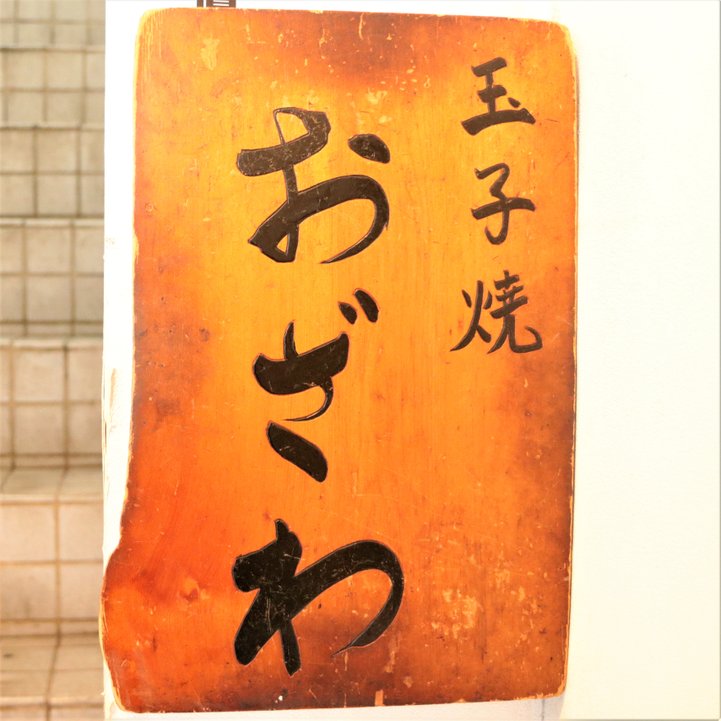 玉子焼
おざわ